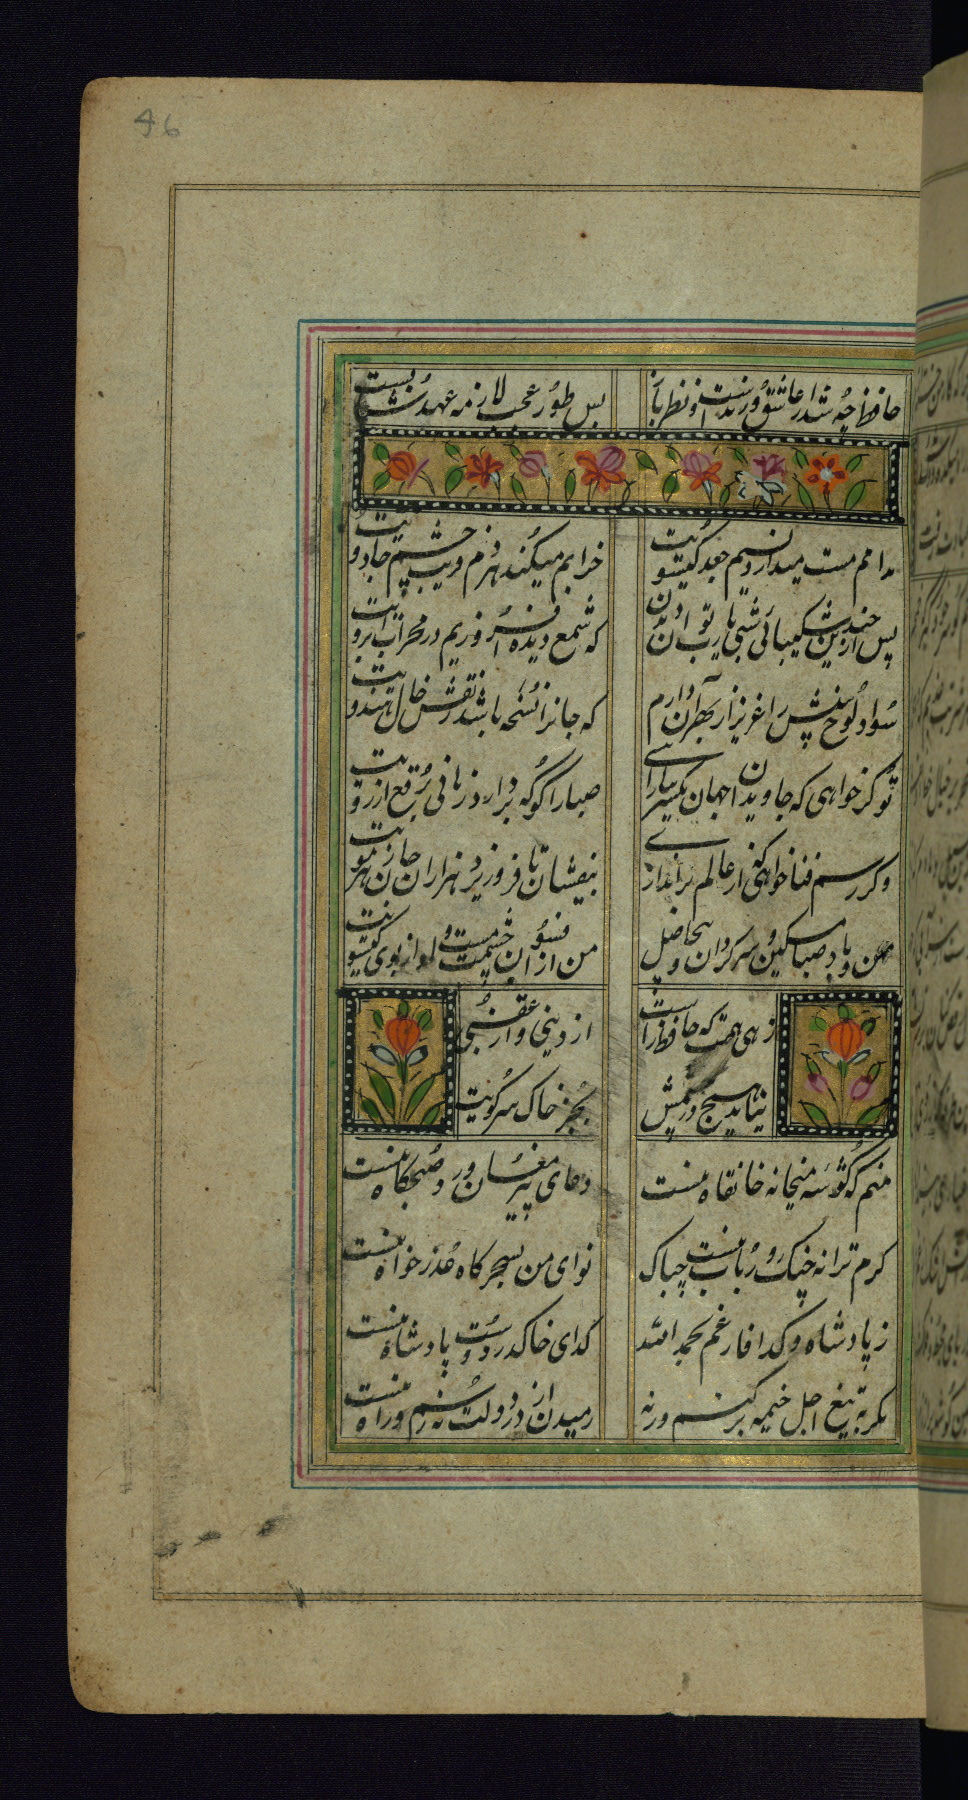 46
حافظ چه شد ار عاشق و رندست و نظرباز
بس طور عجب لازمه عهد شبابست
مدامم مست میدارد نسیم جعد گیسویت
خرابم میکند هر دم فریب چشم جادویت
پس از چندین شکیبائی شبی یارب توان دیدن
که شمع دیده افروزیم در محراب ابرویت
سواد لوح بینش را عزیز از بهر آن دارم
که جانرا نسخه باشد ز نقش خال هندویت
تو گر خواهی که جاویدان جهان یکسر بیارائی
صبا را گو که بردارد زمانی برقع از رویت
و گر رسم فنا خواهی که از عالم براندازی
بیفشان تا فرو ریزد هزاران جان ز هر مویت
من و باد صبا مسکین و سرگردان و بیحاصل
من از افسون چشمت مست و او از بوی گیسویت
زهی همت که حافظ راست
از دینی و از عقبی
نیاید هیچ در چشمش
بجز خاک سر کویت
منم که گوشه میخانه خانقاه منست
دعای پیر مغان ورد صبحگاه منست
گرم ترانه چنگ و رباب نیست چه باک
نوای من بسحرگاه عذرخواه منست
ز پادشاه و گدا فارغم بحمدالله
گدای خاک در دوست پادشاه منست
مگر به تیغ اجل خیمه برکنم ورنه
رمیدن از در دولت نه رسم و راه منست